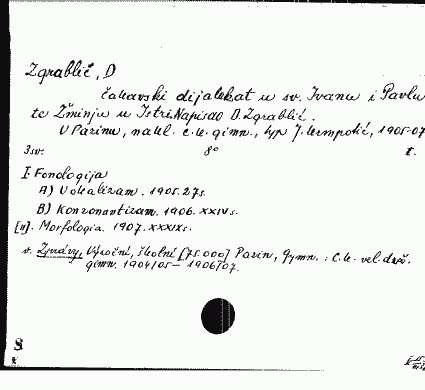 Zgrablić, D
čakavski dijalekat u sv. Ivanu i Pavlu
te Žminju u Istri. Napisao D. Zgrablić.
U Pazinu, nakl. c.k. gimn., typ J. Krmpotić, 1905-07
3sv. 8° I.
I. Fonologija
A) Vokalizam. 1905. 27s.
B) Konzonantizam. 1906. XXIVs.
[II]. Morfologia. 1907. XXXIXs.
v. Zprávy, Výroční, školní [75.000] Pazin, Gymn. : C.k. vel. drž.
gimn. 1904/05 - 1906/07.
S